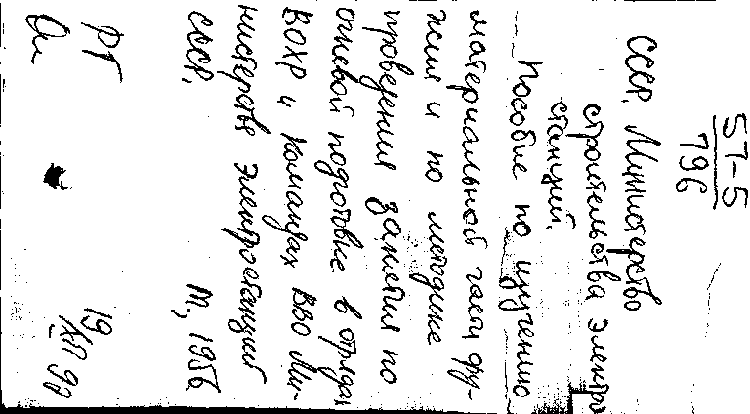 57-5
796
СССР, Министерство
строительства электро
станций.
Пособие по изучению
материальной части ору-
жия и по методике
проведения занятия по
огневой подготовке в отрядах
ВОХР и командах ВВО Ми-
нистерства электростанций
СССР.
М, 1956
РГ
19